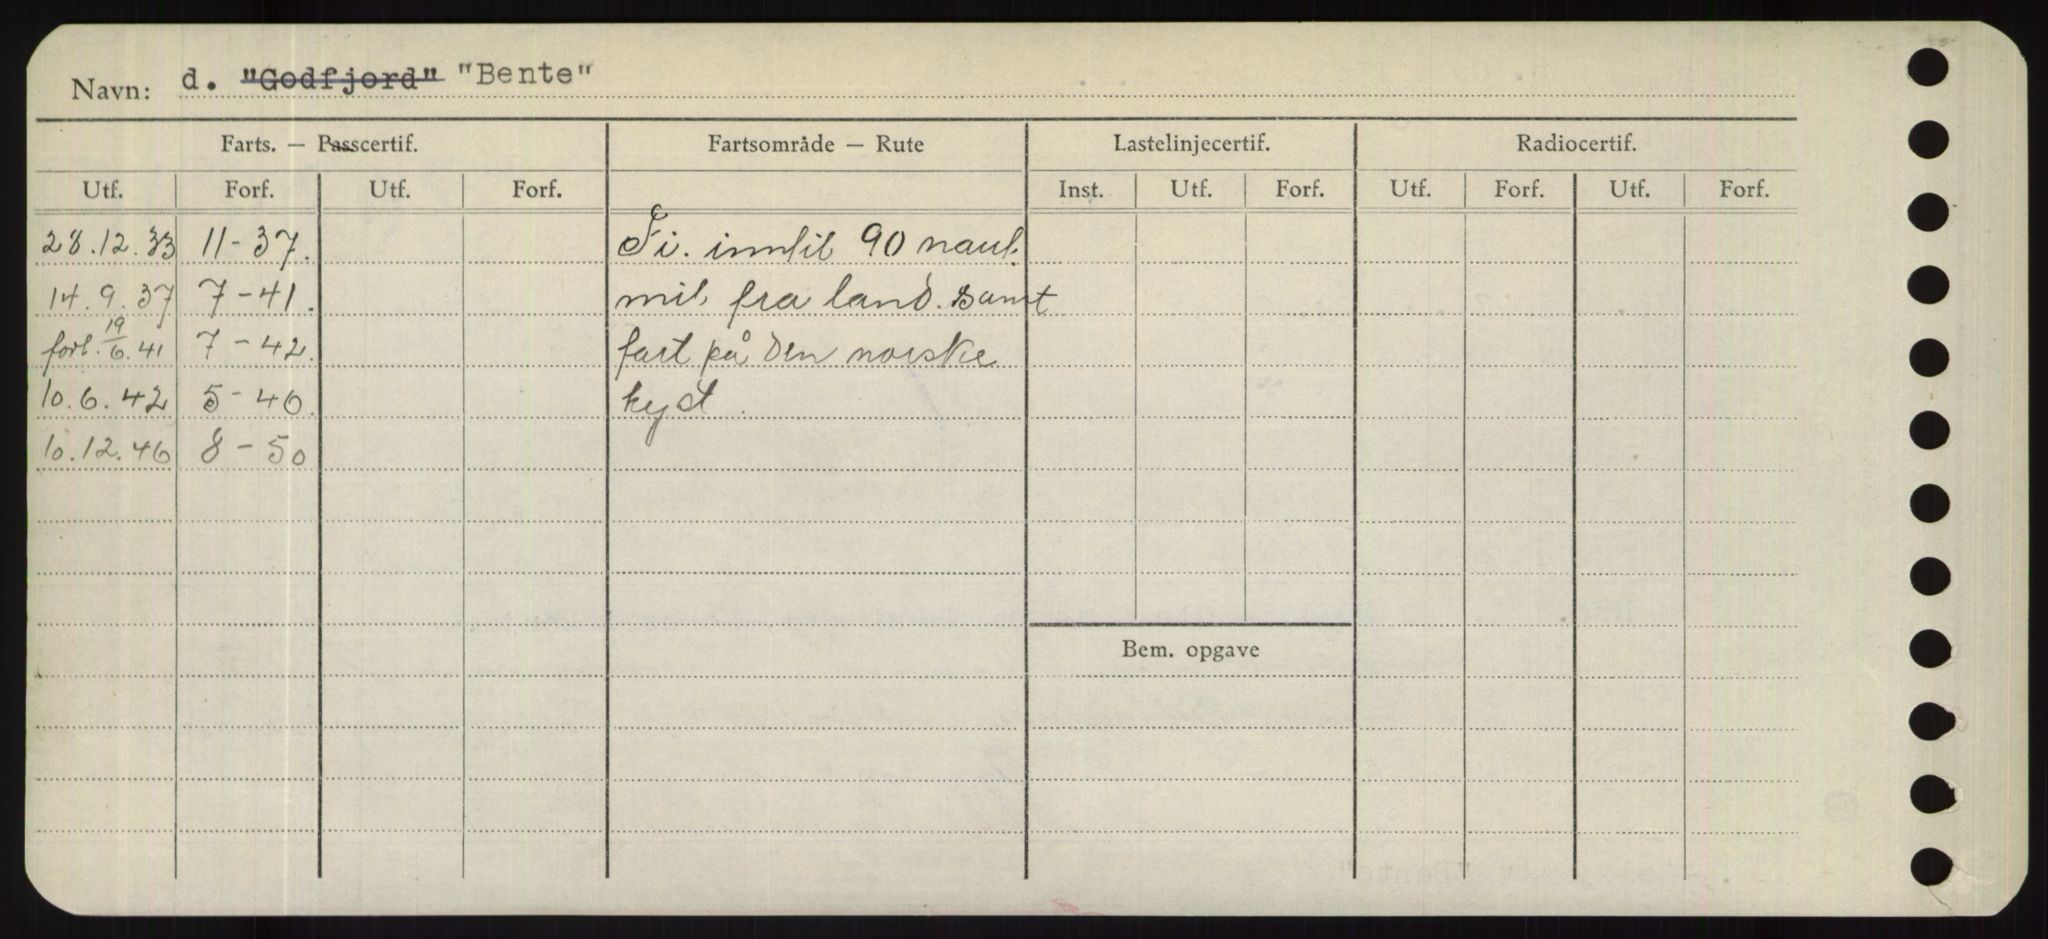 Navn: d. "Godfjord" "Bente"
Farts. — Passcertif. Fartsområde — Rute Lastelinjecertif. Radiocertif.
Utf. Forf. Utf. Forf. Inst. Utf. Forf. Utf. Forf. Utf. Forf.
28.12.33 11-37. Fi. inntil 90 naut.
14.9.37 7-41. mil, fra land. samt
forl. 19/6.41 7-42. fart på den norske
10.6.42 5-46. kyst.
10.12.46 8-50
Bem. opgave